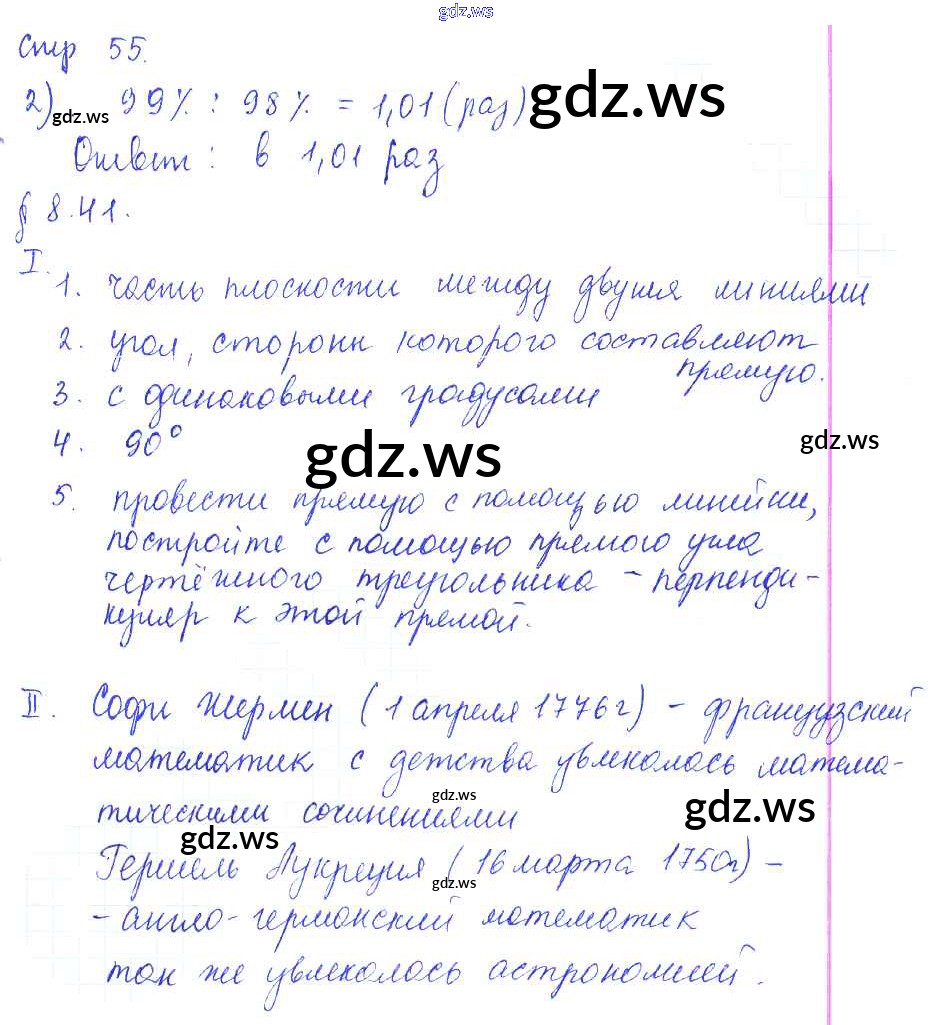 gdz.ws
Стр 55.
2) 99% : 98% = 1,01 (раз) gdz.ws
gdz.ws
Ответ: в 1,01 раз
§ 8.41.
I.
1. часть плоскости между двумя линиями
2. угол, стороны которого составляют
прямую.
3. с одинаковыми градусами
4. 90°
gdz.ws
gdz.ws
5. провести прямую с помощью линейки,
постройте с помощью прямого угла
чертёжного треугольника - перпенди-
куляр к этой прямой.
II. Софи Жермен (1 апреля 1776г) - французский
математик с детства увлекалась матема-
тическими сочинениями
gdz.ws
gdz.ws
gdz.ws
Гершель Лукреция (16 марта 1750г) -
gdz.ws
- англо-германский математик
так же увлекалась астрономией.
gdz.ws
gdz.ws